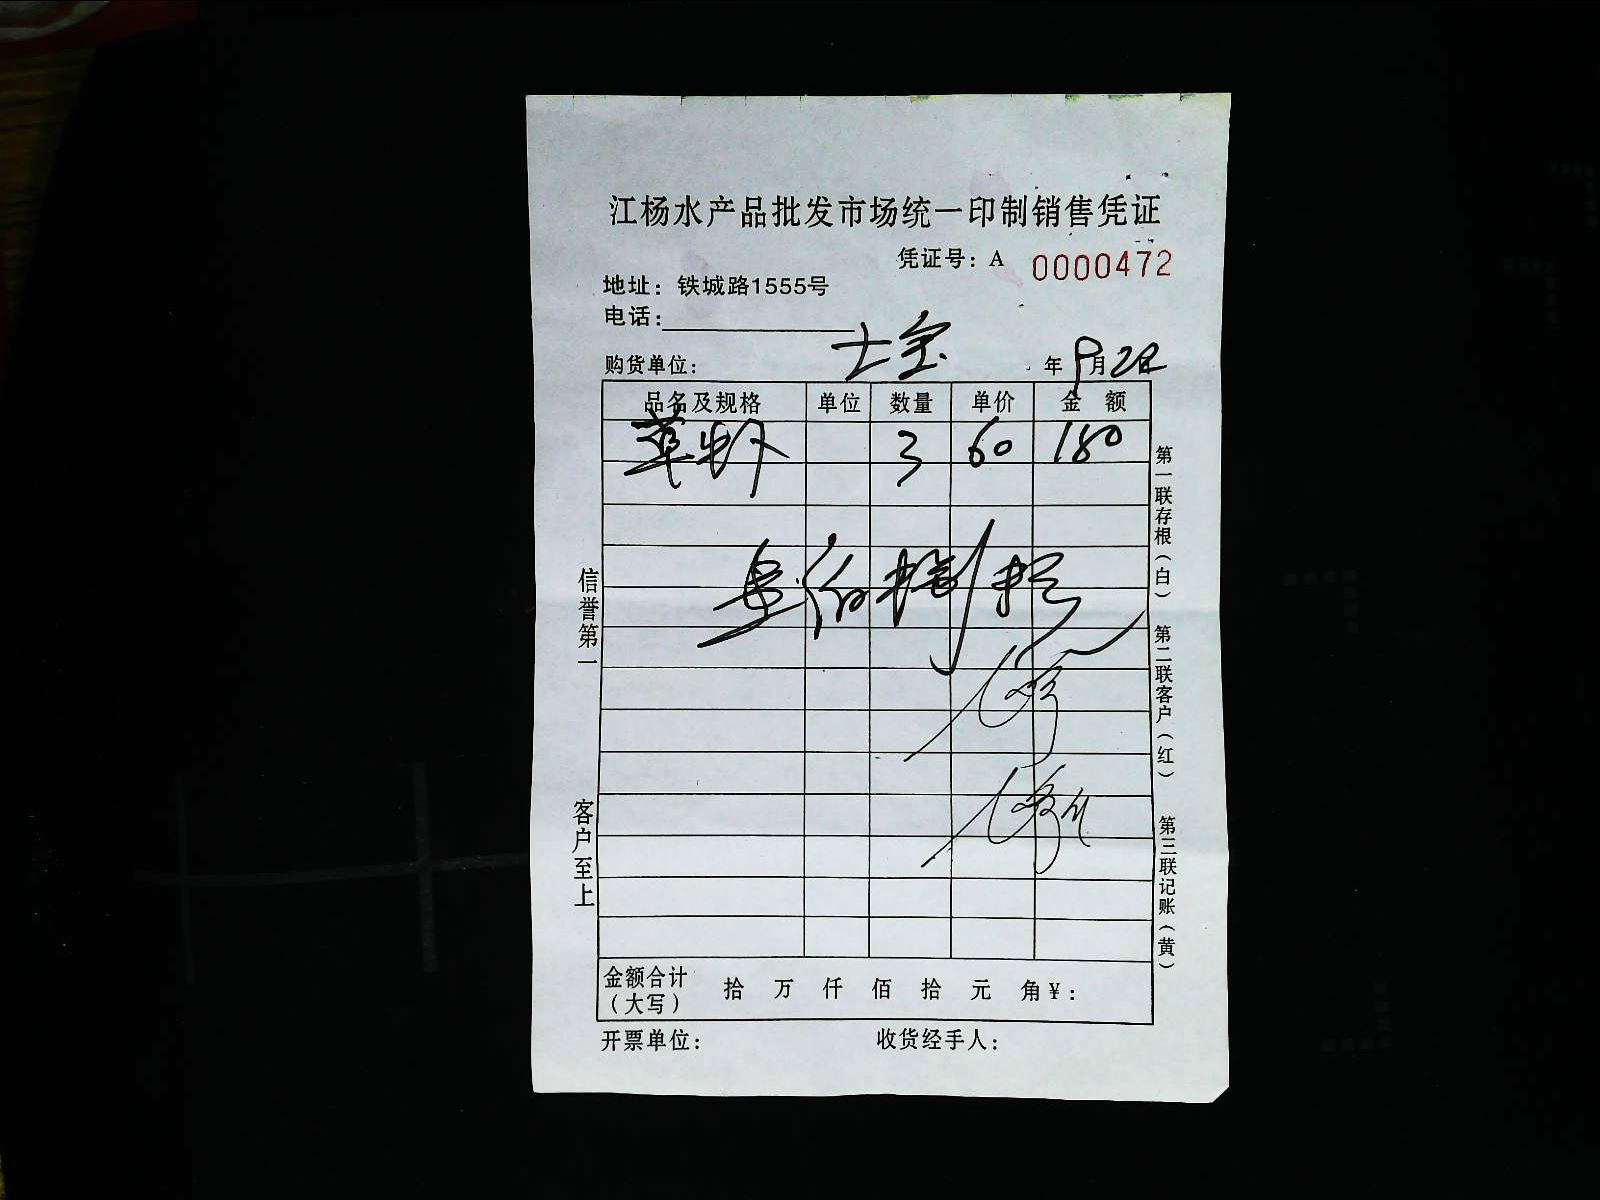 江杨水产品批发市场统一印制销售凭证
凭证号：A 0000472
地址：铁城路1555号
电话：
购货单位： 士宝 年 9月2日
品名及规格 单位 数量 单价 金额
草虾 3 60 180
壹佰捌拾
信誉第一
客户至上
第一联存根（白） 第二联客户（红） 第三联记账（黄）
金额合计（大写） 拾 万 仟 佰 拾 元 角￥：
开票单位： 收货经手人：